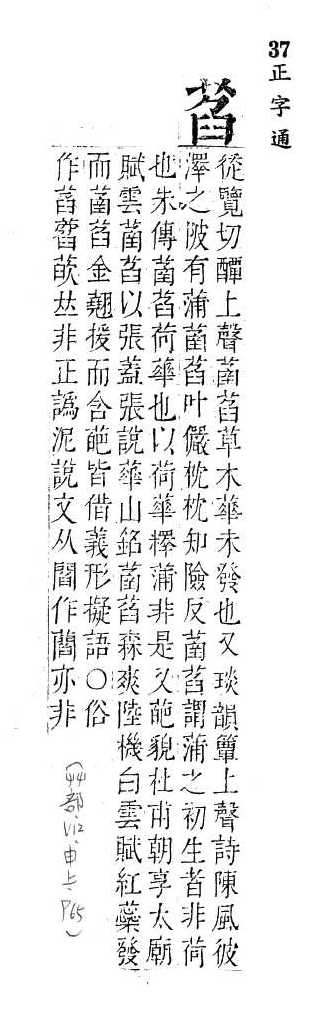 37正字通
萏
從覽切醰上聲菡萏草木華未發也又琰韻簟上聲詩陳風彼
澤之陂有蒲菡萏叶儼枕枕知險反菡萏謂蒲之初生者非荷
也朱傳菡萏荷華也以荷華釋蒲非是又葩貌杜甫朝享太廟
賦雲菡萏以張蓋張說華山銘菡萏森爽陸機白雲賦紅蘂發
而菡萏金翹援而含葩皆借義形擬語○俗
作萏𦿆蓞𠀤非正譌泥說文从閻作藺亦非
(艸部、V12、申上、P65)